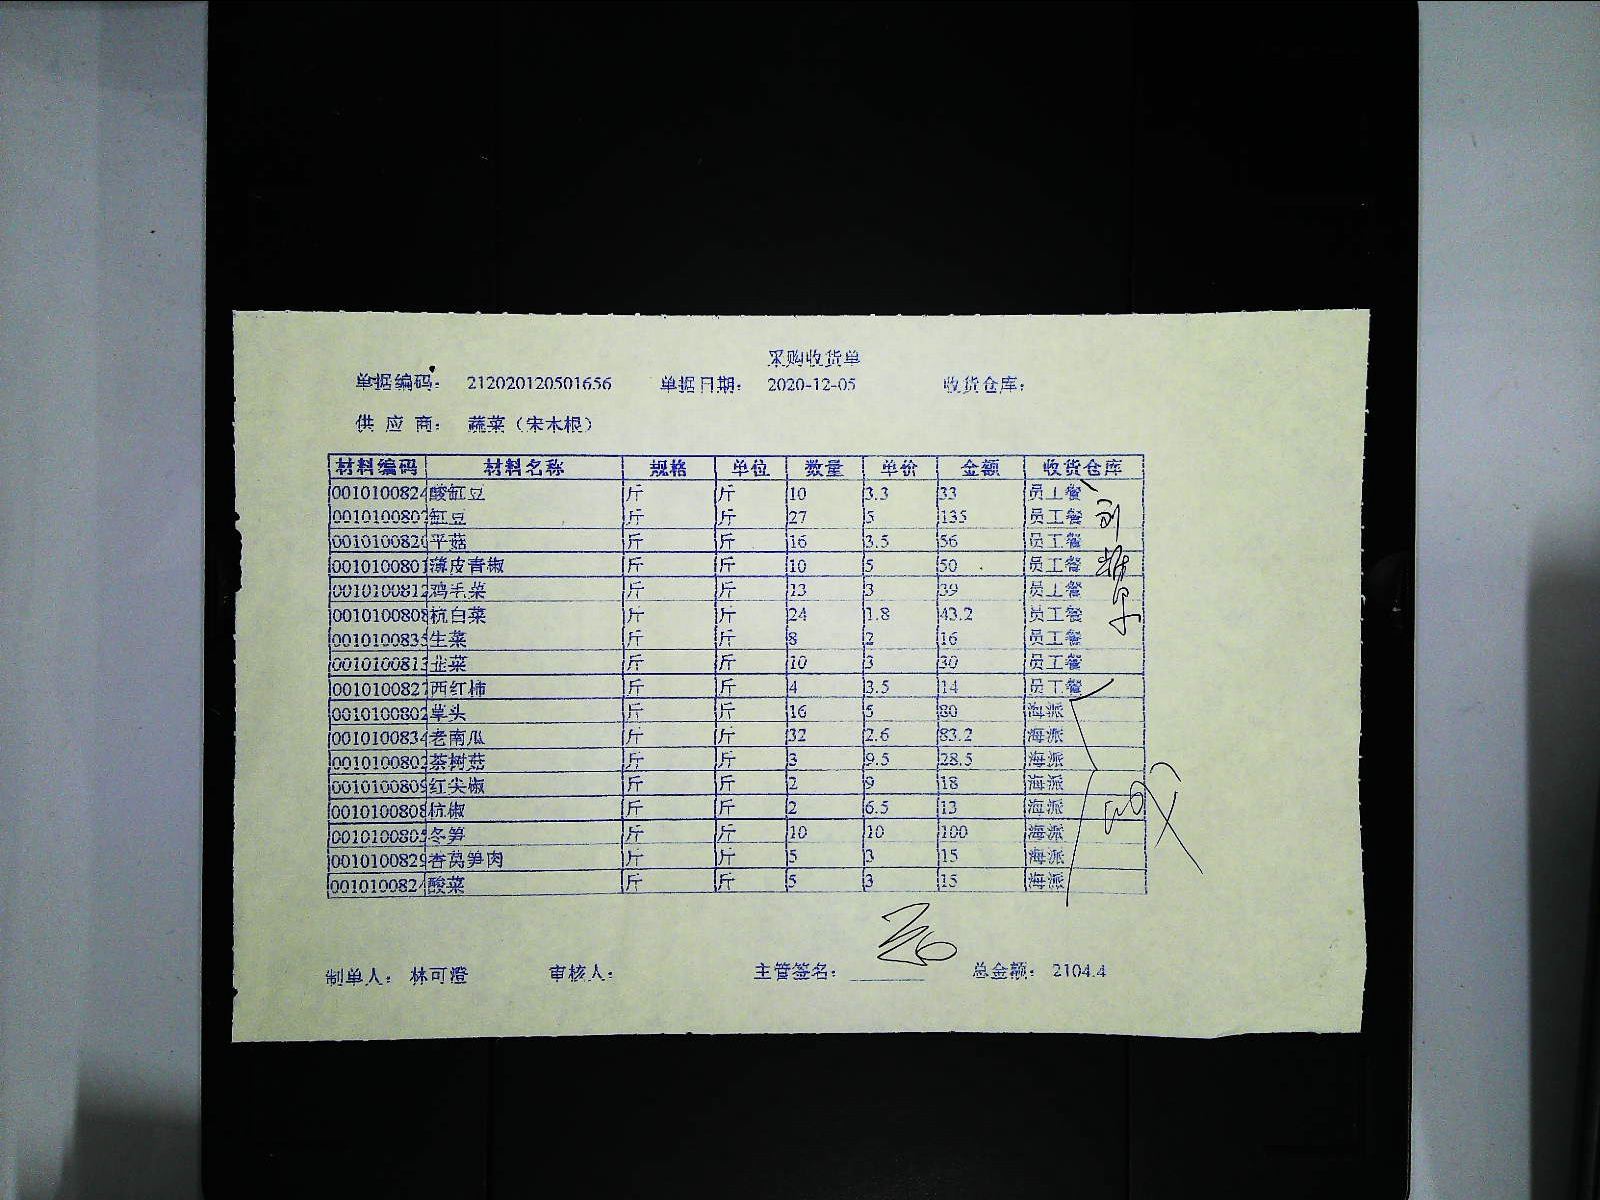 采购收货单
单据编码： 212020120501656 单据日期： 2020-12-05 收货仓库：
供 应 商： 蔬菜（宋木根）
材料编码 材料名称 规格 单位 数量 单价 金额 收货仓库
0010100824 酸缸豆 斤 斤 10 3.3 33 员工餐
001010080 缸豆 斤 斤 27 5 135 员工餐
001010082 平菇 斤 斤 16 3.5 56 员工餐
0010100801 薄皮青椒 斤 斤 10 5 50 员工餐
0010100812 鸡毛菜 斤 斤 13 3 39 员工餐
0010100808 杭白菜 斤 斤 24 1.8 43.2 员工餐
001010083 生菜 斤 斤 8 2 16 员工餐
001010081 韭菜 斤 斤 10 3 30 员工餐
001010082 西红柿 斤 斤 4 3.5 14 员工餐
0010100802 草头 斤 斤 16 5 80 海派
0010100834 老南瓜 斤 斤 32 2.6 83.2 海派
0010100802 茶树菇 斤 斤 3 9.5 28.5 海派
0010100809 红尖椒 斤 斤 2 9 18 海派
0010100808 杭椒 斤 斤 2 6.5 13 海派
001010080 冬笋 斤 斤 10 10 100 海派
0010100829 香莴笋肉 斤 斤 5 3 15 海派
0010100824 酸菜 斤 斤 5 3 15 海派
制单人： 林可澄 审核人： 主管签名： 总金额： 2104.4